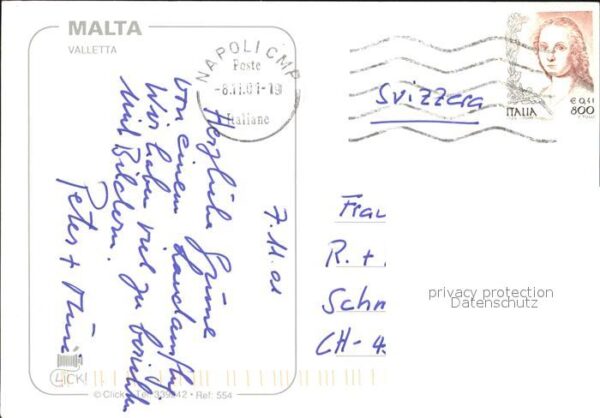 MALTA
VALLETTA
NAPOLI CMP
Poste
-8.11.01-19
Italiane
Svizzera
€ 0,41
ITALIA 800
7.11.01
Herzliche Grüsse
von einem Landausflug
Wir haben viel zu berichten
mit Bildern.
Peter +
Frau
R. +
Schn
CH-43
privacy protection
Datenschutz
CLICK!
© Click • Tel: 339242 • Ref: 554